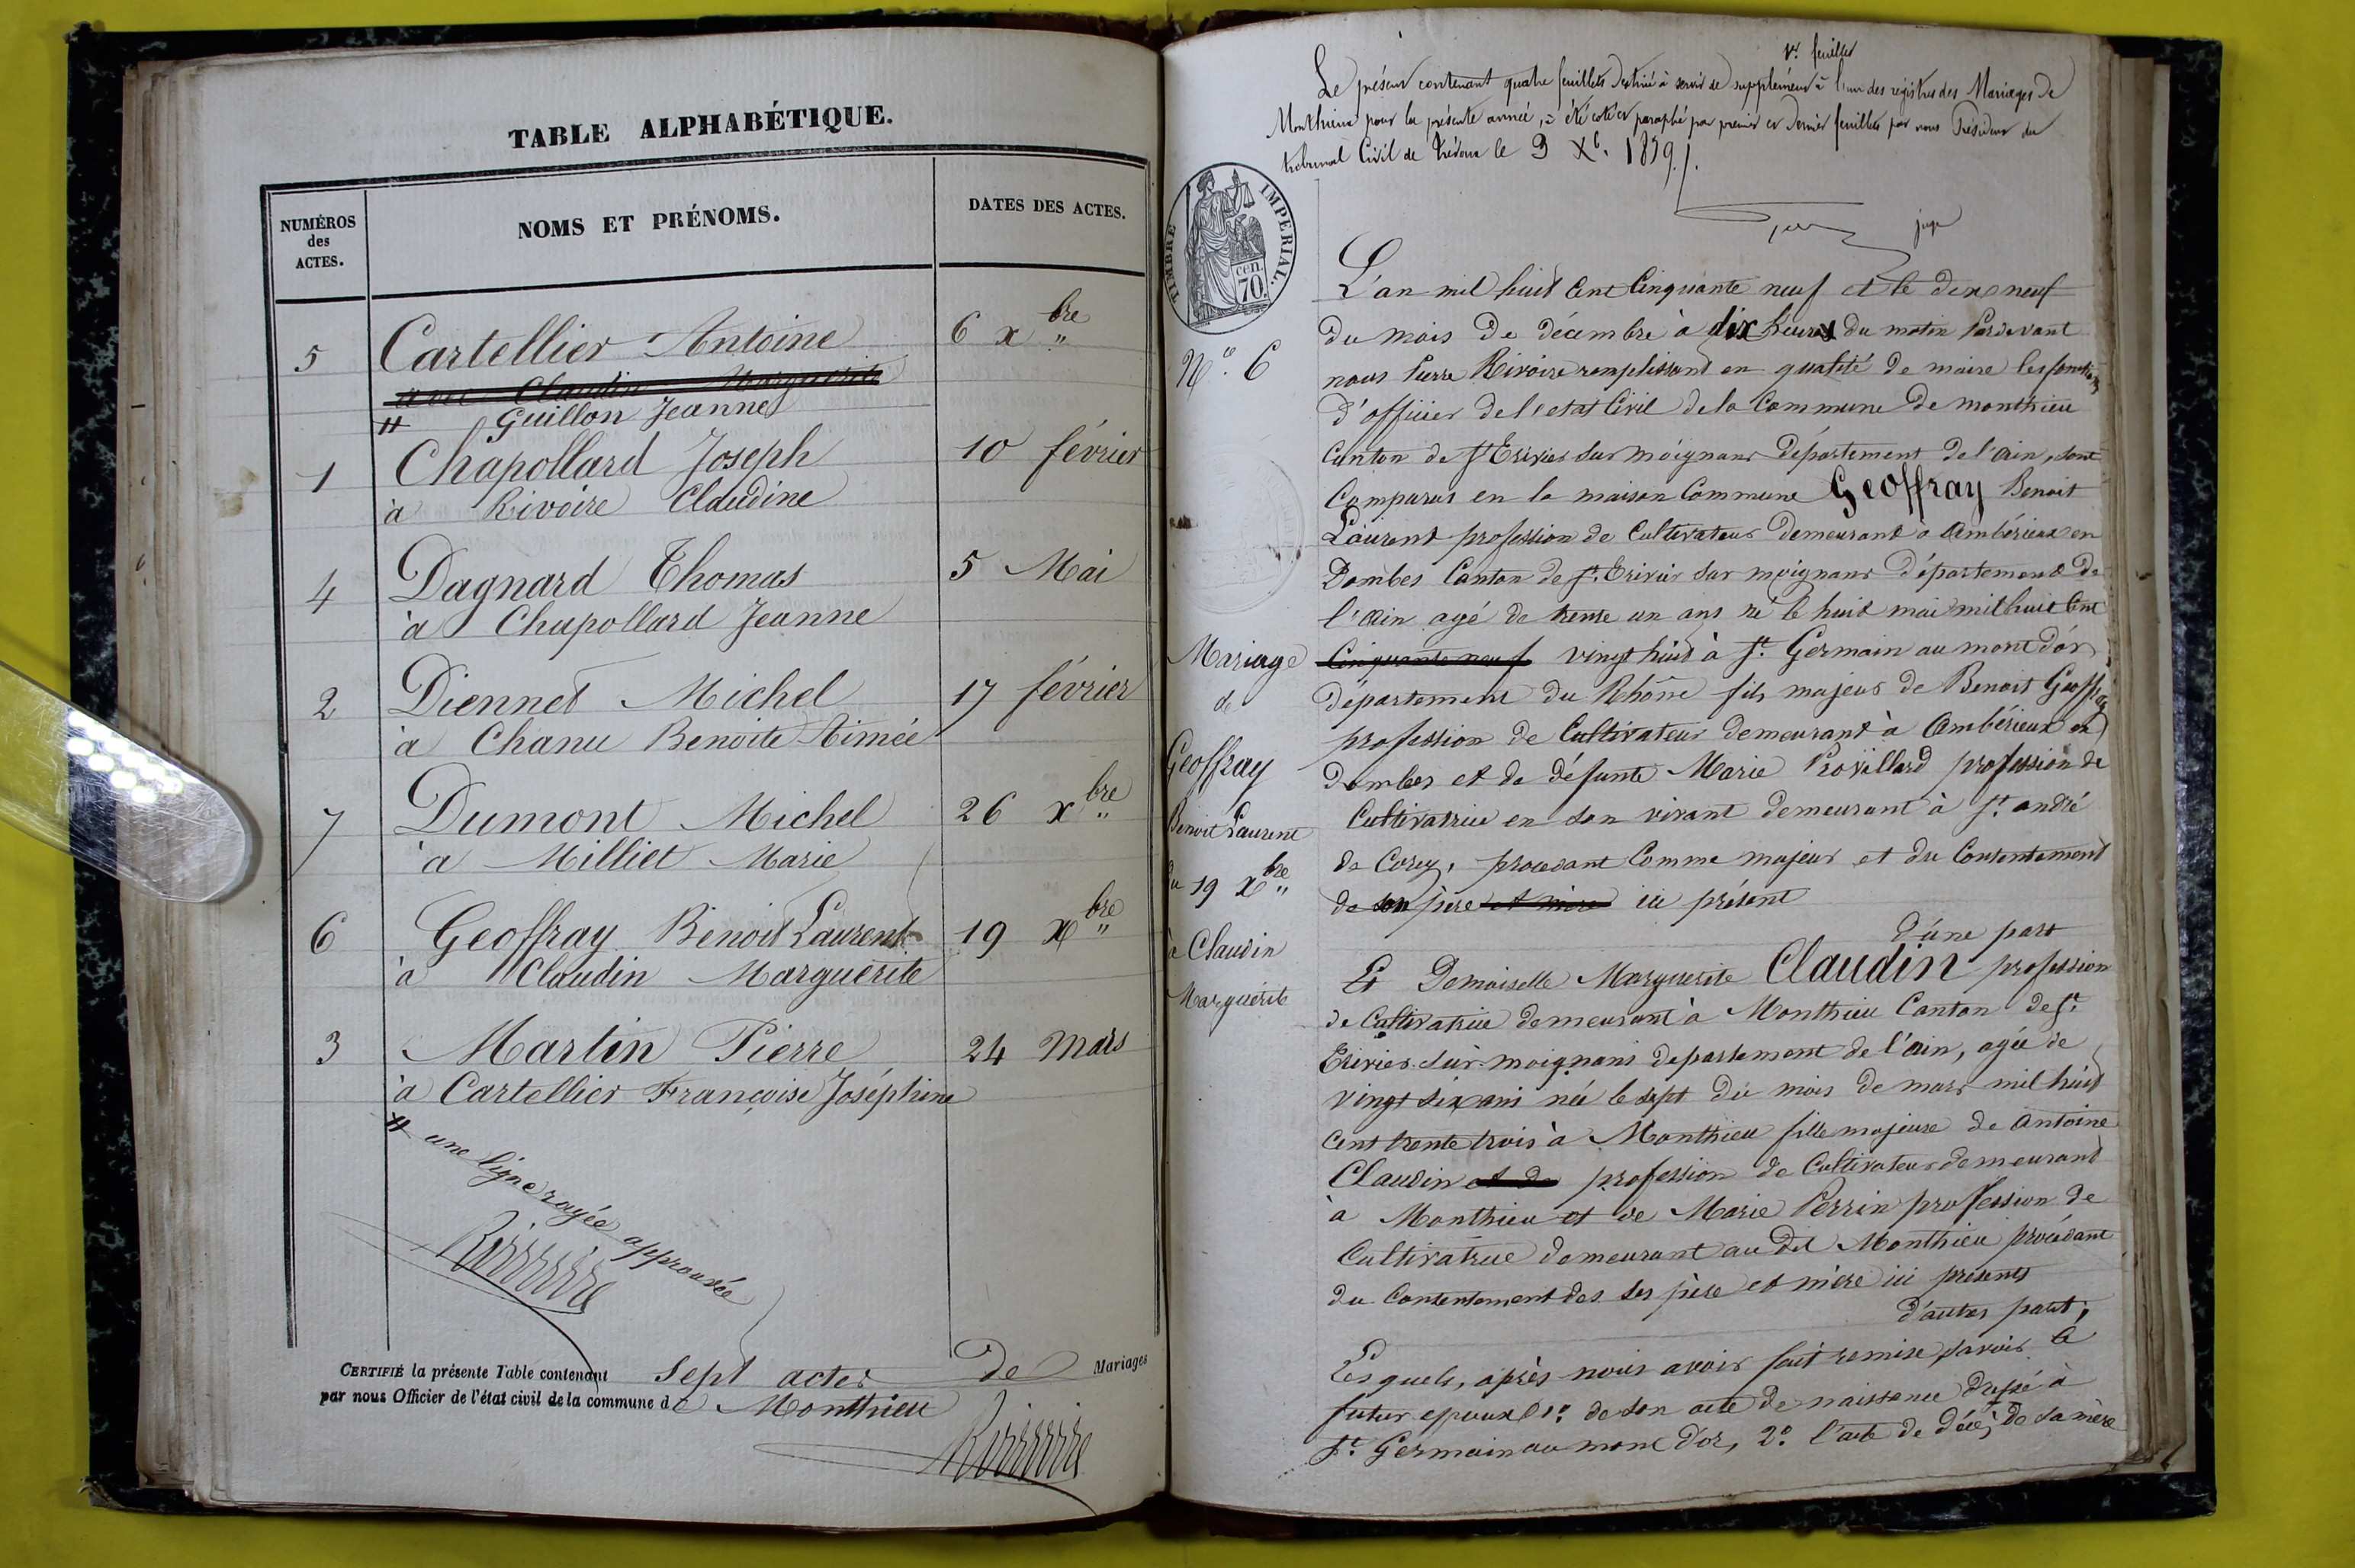 TABLE ALPHABÉTIQUE.
NUMÉROS
des
ACTES.
NOMS ET PRÉNOMS.
DATES DES ACTES.
5 Cartellier Antoine 6 xbre
avec Claudin Marguerite
# Guillon Jeanne
1 Chapollard Joseph 10 février
à Rivoire Claudine
4 Dagnard Thomas 5 Mai
à Chapollard Jeanne
2 Diennet Michel 17 février
à Chanu Benoite Aimée
7 Dumont Michel 26 xbre
à Milliet Marie
6 Geoffray Benoit Laurent 19 xbre
à Claudin Marguerite
3 Martin Pierre 24 Mars
à Cartellier Françoise Joséphine
# une ligne rayée approuvée
Rivoire
CERTIFIÉ la présente Table contenant sept actes de Mariages
par nous Officier de l'état civil de la commune de Monthieu
Rivoire
1er feuillet
Le présent contenant quatre feuillets destiné à servir de supplément à l'un des registres des Mariages de
Monthieux pour la présente année, a été coté et paraphé par premier et dernier feuillets par nous Président du
tribunal Civil de Trévoux le 3 Xb. 1859.
juge
TIMBRE IMPERIAL.
70 cen.
N.o 6
Mariage
de
Geoffray
Benoit Laurent
du 19 Xbre
à Claudin
Marguerite
L'an mil huit Cent Cinquante neuf et le dix neuf
du mois de décembre à dix heures du matin Pardevant
nous Pierre Rivoire remplissant en qualité de maire les fonctions
d'officier de l'etat Civil de la Commune de monthieu
Canton de St Trivier sur moignans département de l'ain, sont
Comparus en la maison Commune Geoffray Benoit
Laurent profession de Cultivateur demeurant à Ambérieux en
Dombes Canton de St. Trivier sur moignans département de
l'ain agé de trente un ans né le huit mai mil huit Cent
Cinquante neuf vingt huit à St. Germain au mont d'or
département du Rhône fils majeur de Benoit Geoffray
profession de Cultivateur demeurant à Ambérieux en
dombes et de défunte Marie profession de
Cultivatrice en son vivant demeurant à St. andré
de Corcy, procedant Comme majeur et du Consentement
de son père et mère ici présent
d'une part
Et Demoiselle Marguerite Claudin profession
de Cultivatrice demeurant à Monthieu Canton de St.
Trivier sur moignans departement de l'ain, agée de
vingt six ans née le sept du mois de mars mil huit
Cent trente trois à Monthieu fille majeure de Antoine
Claudin et de profession de Cultivateur demeurant
à Monthieu et de Marie Perrin profession de
Cultivatrice demeurant au dit Monthieu procédant
du Consentement des ses père et mère ici présents
d'autre part,
Lesquels, après nous avoir fait remise savoir le
futur epoux 1o. de son acte de naissance dressé à
St. Germain au mont d'or, 2o. l'acte de décès de sa mère